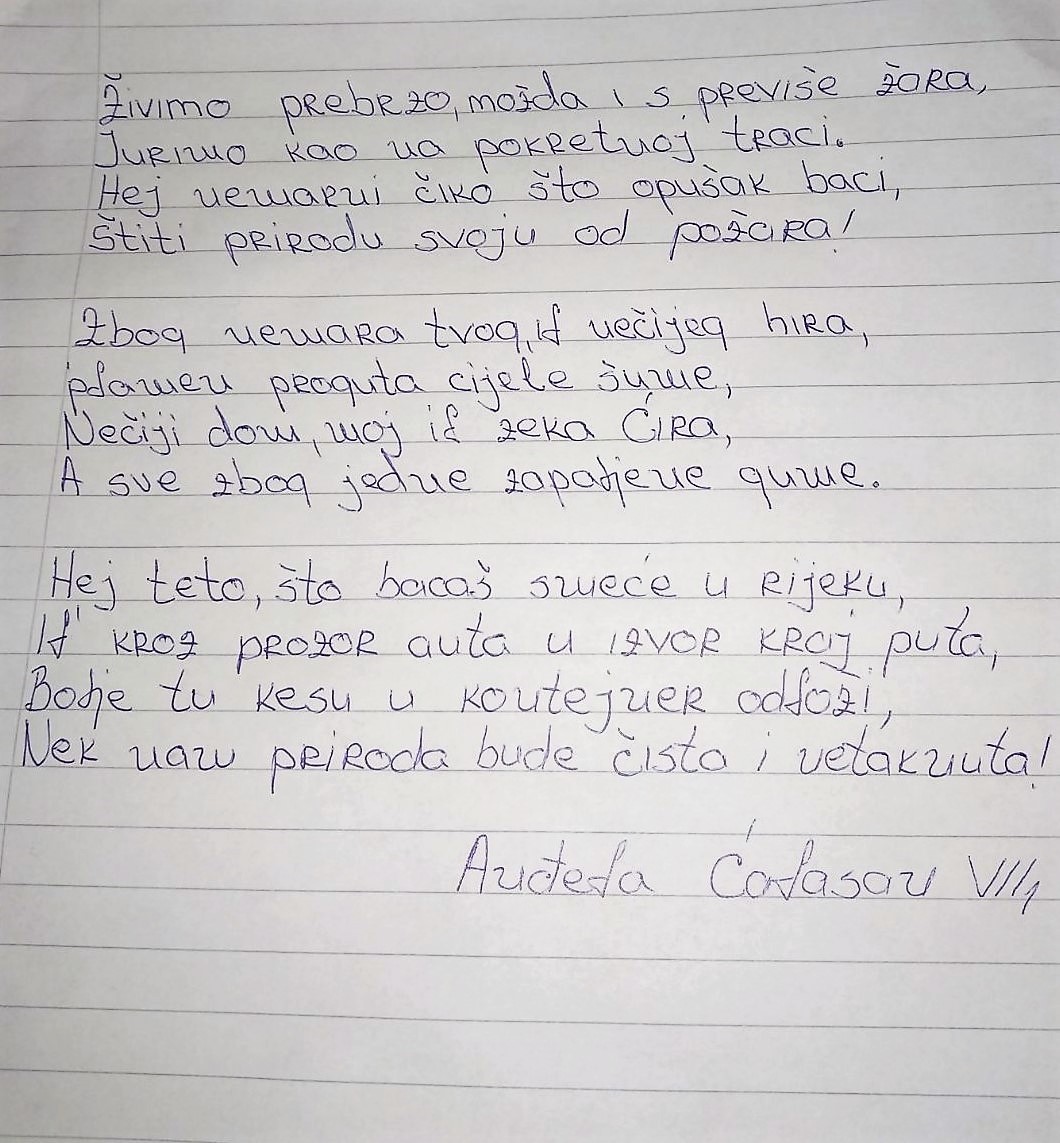 Živimo prebrzo, možda i s previše žara,
Jurimo kao na pokretnoj traci.
Hej nemarni čiko što opušak baci,
Štiti prirodu svoju od požara!
Zbog nemara tvog, il nečijeg hira,
plamen proguta cijele šume,
Nečiji dom, moj il zeka Ćira,
A sve zbog jedne zapaljene gume.
Hej teto, što bacaš smeće u rijeku,
Il' kroz prozor auta u izvor kraj puta,
Bolje tu kesu u kontejner odloži,
Nek nam priroda bude čista i netaknuta!
Anđela Ćalasan VIII1